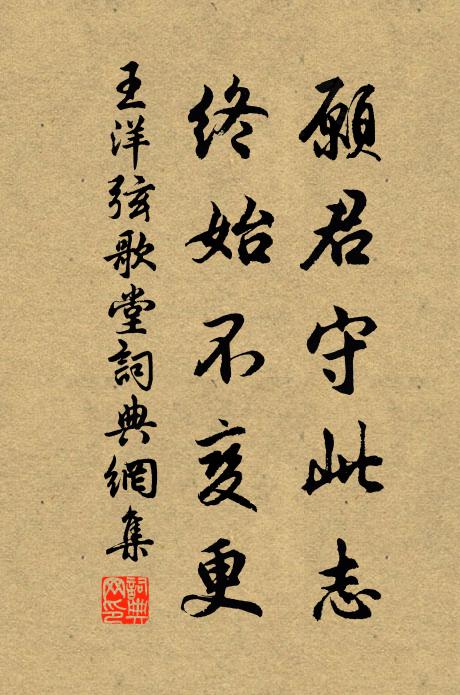 願君守此志
終始不变更
王洋弦歌堂詞典網集
詞典网印